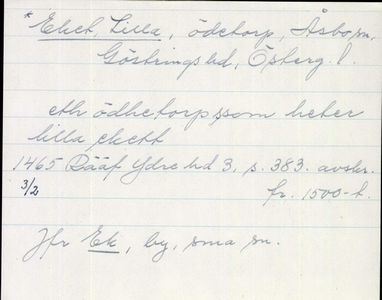 * Eket, Lilla, ödetorp, Åsbo sn,
Göstrings hd, Österg. l.
eth ödhetorp som heter
lilla ekett
1465 Rääf Ydre hd 3, s. 383. avskr.
3/2 fr. 1500-t.
Jfr Ek, by, sma sn.